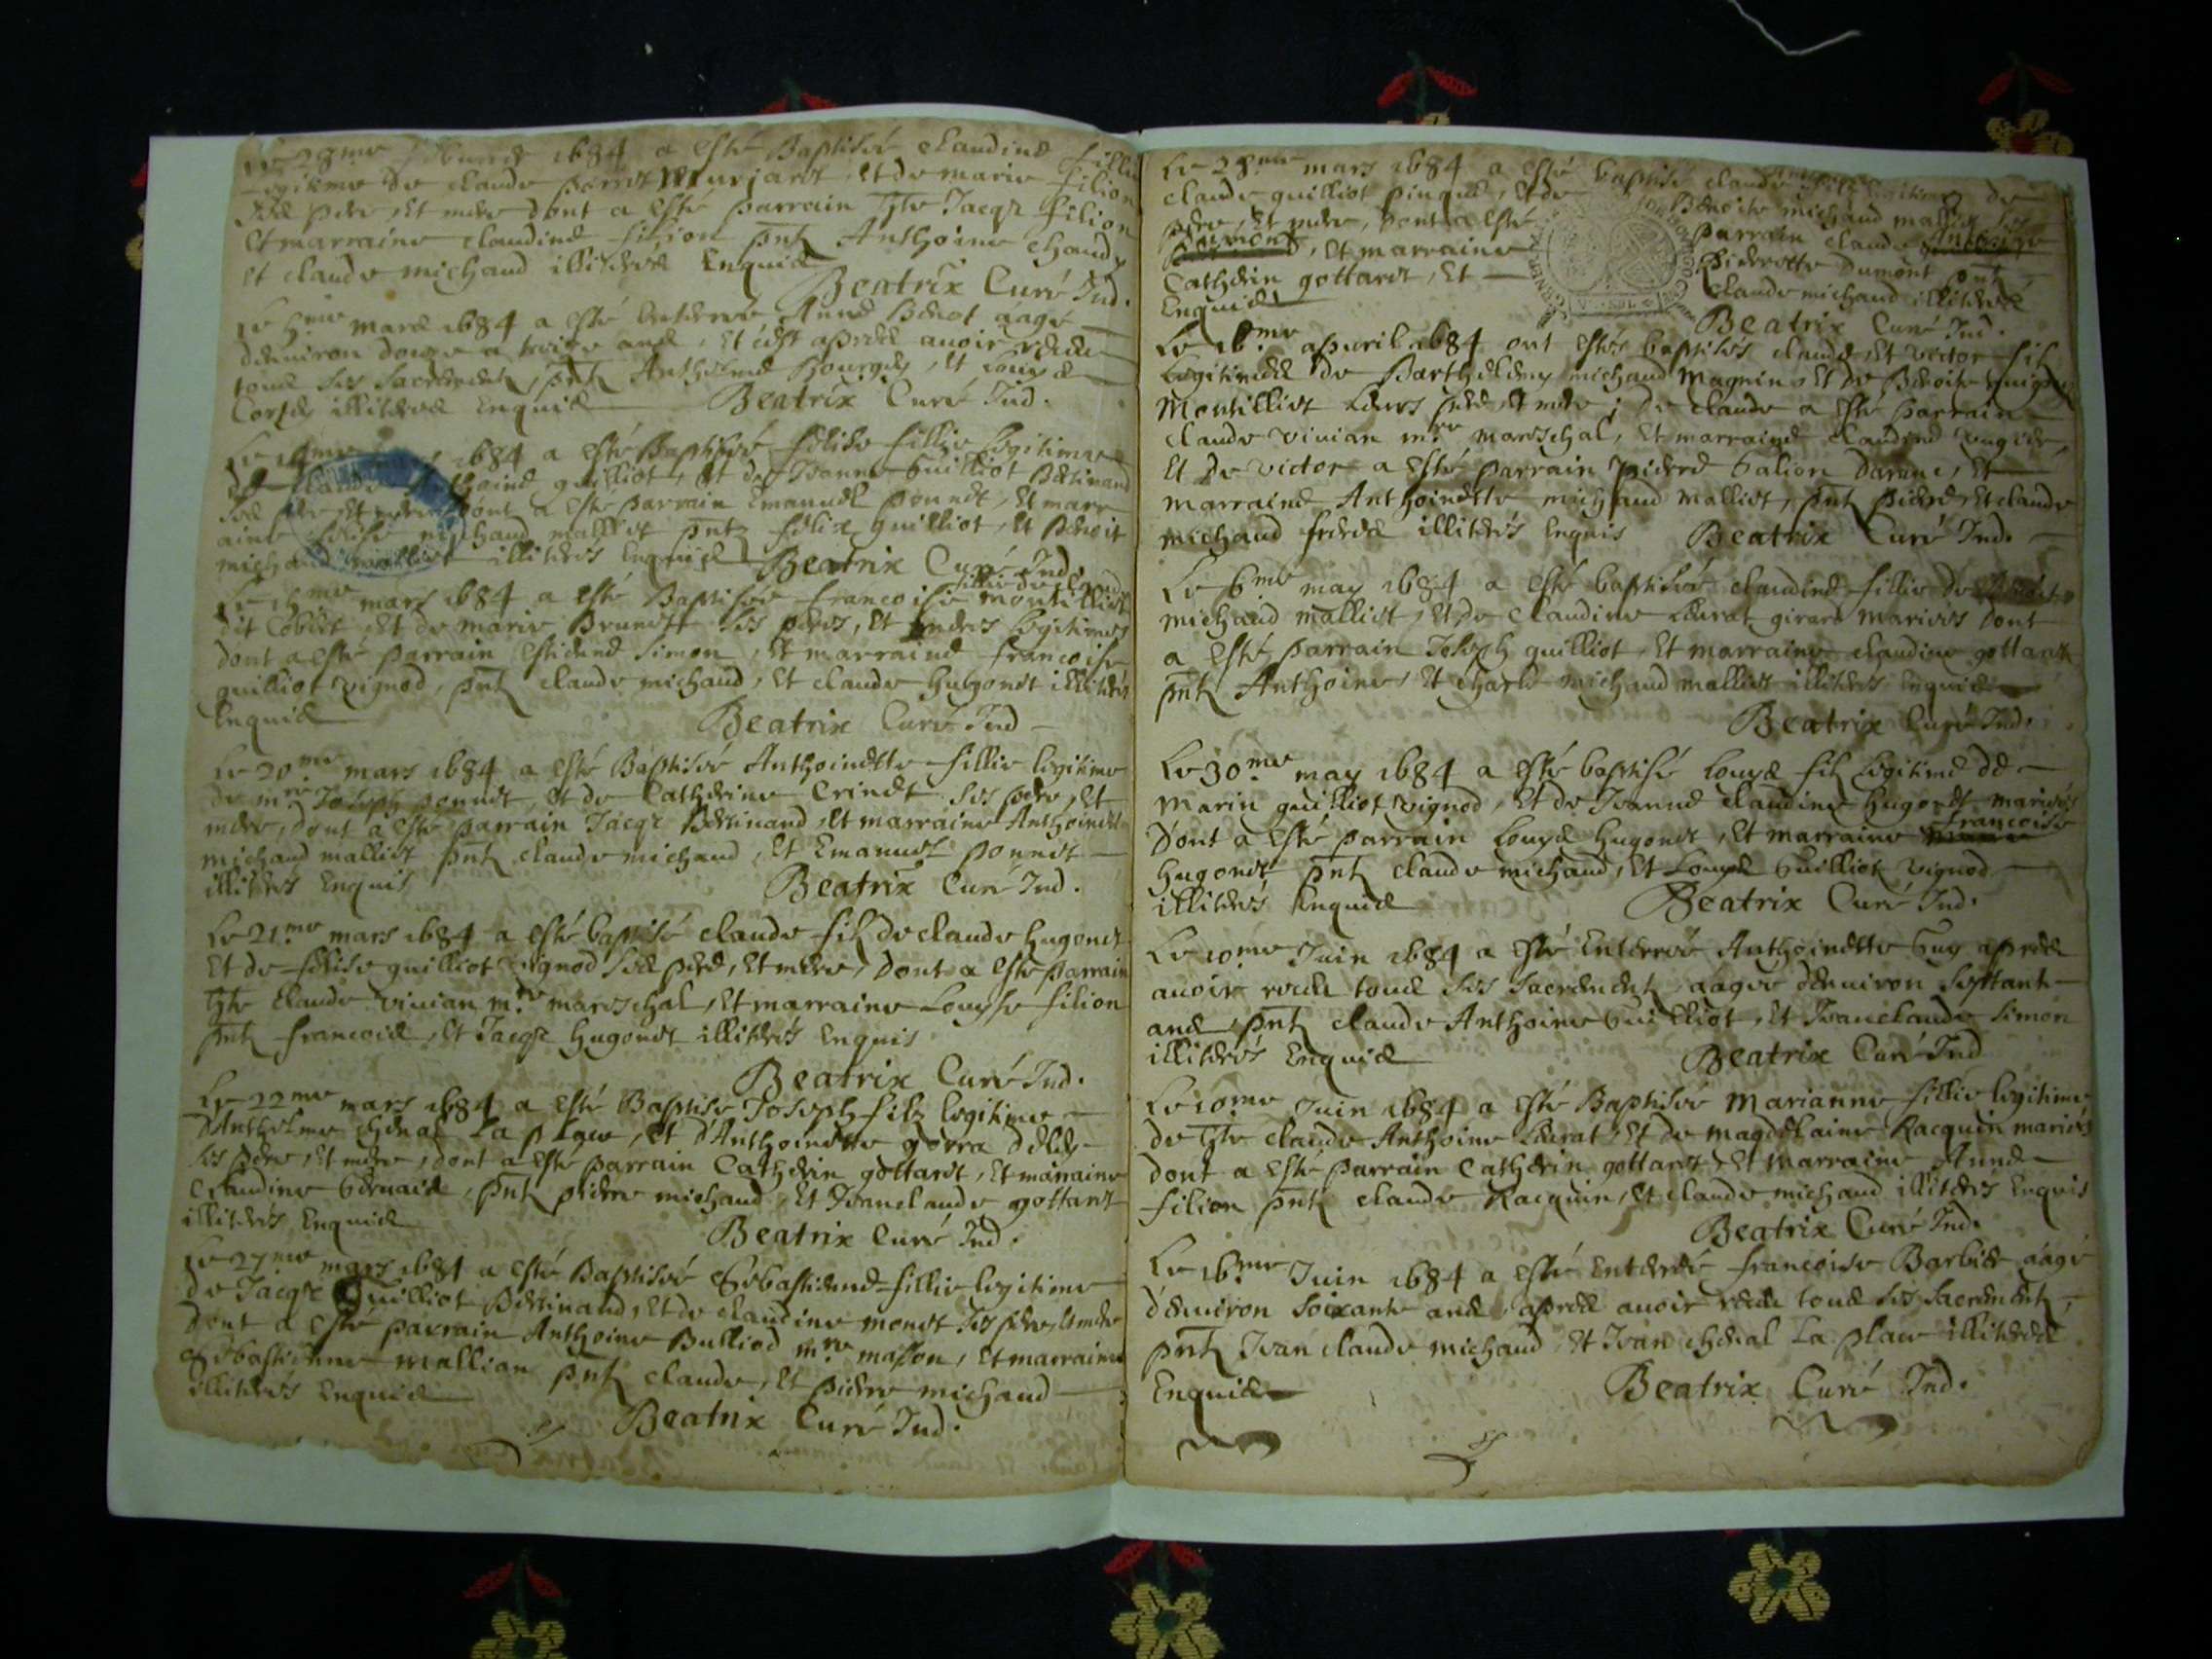 28me 1684 a esté Baptisée claudine fillie
legitime de claude perret Murjaret et de marie filion
ses pere, et mere dont a esté parrain hte Jacqs filion
et marraine claudine filion pnts Anthoine
et claude michaud illiterés Enquis
Beatrix Curé Ind.
Le mars 1684 a esté enterrée Anne aagé
denviron douze a treize ans, et cest apres avoir receu
tous ses sacrements, pnts Anthelme Bourgey, et Louys
illiterés Enquis Beatrix Curé Ind.
1684 a esté Baptisée felise fillie legitime
de claude Anthoine guilliot, et de Jeanne Guilliot Petinand
ses pere et mere dont a esté parrain Emanuel ponnet, et marr
aine felise michaud malliet pnts felix guilliot, et Benoit
michaud malliet illiterés Enquis Beatrix Curé Ind.
fillie de claude
Le mars 1684 a esté Baptisée francoise montilliet
dit Collet, et de marie Brunet ses peres, et meres legitimes
dont a esté parrain Estienne Simon, et marraine francoise
guilliot vignod, pnts claude michaud, et claude hugonet illiterés
Enquis Beatrix Curé Ind
Le 20me mars 1684 a esté Baptisée Anthoinette fillie legitime
de mre Joseph ponnet, et de Catherine Crinet ses pere, et
mere, dont a esté parrain Jacqs Petinand, et marraine Anthoinette
michaud malliet pnts claude michaud, et Emanuel ponnet
illiterés Enquis Beatrix Curé Ind.
Le 21me mars 1684 a esté baptisé claude filz de claude hugonet
Et de felise guilliot vignod ses pere, et mere, dont a esté parrain
hte claude vivian mre mareschal, et marraine Louyse filion
pnts francois, et Jacqs hugonet illiterés Enquis
Beatrix Curé Ind.
Le 22me mars 1684 a esté Baptisé Joseph filz legitime
d'Anthelme cheval La place, et d'Anthoinette gorra
ses pere, et mere, dont a esté parrain Catherin gottaret, et marraine
claudine Gervais, pnts pierre michaud, et Jeanclaude gottaret
illiterés Enquis Beatrix Curé Ind.
Le 27me mars 1684 a esté Baptisée Sebastienne fillie legitime
de Jacqs Guilliot Petinand, et de claudine monet ses pere, et mere
dont a esté parrain Anthoine Bulliod mre masson, et marraine
Sebastienne mallian pnts claude, et pierre michaud
illiterés Enquis
Beatrix Curé Ind.
Le 28me mars 1684 a esté baptisé claude filz legitime de
claude guilliot pinguet, et de Benoite michaud malliet ses
pere, et mere, dont a esté parrain claude
Dumont, et marraine pierrette Dumont pnts
Catherin gottaret, et claude michaud illiterés
Enquis Beatrix Curé Ind.
Le 16me apvril 1684 ont estés baptisés claude, et victor filz
Legitimes de Barthelemy michaud Magnin, et de Benoite
Montilliet Leurs pere, et mere; de claude a esté parrain
claude vivian mre mareschal, et marraine claudine
Et de victor a esté parrain pierre Galion Darane, et
marraine Anthoinette michaud malliet, pnts pierre, et claude
michaud freres illiterés Enquis Beatrix Curé Ind.
Le 6me may 1684 a esté baptisée claudine fillie de Benoit
michaud malliet, et de Claudine Lairat girard mariés dont
a esté parrain Joseph guilliot, et marraine claudine gottaret
pnts Anthoine, et charle michaud malliet illiterés Enquis
Beatrix Curé Ind.
Le 30me may 1684 a esté baptisé Louys filz legitime de
Marin guilliot vignod, et de Jeanne claudine hugonet mariés
francoise
Dont a esté parrain Louys hugonet, et marraine
hugonet pnts claude michaud, et Louys Guilliot vignod
illiterés Enquis Beatrix Curé Ind.
Le 10me Juin 1684 a esté Enterrée Anthoinette Guy apres
avoir receu tous ses sacrements, aagée denviron septante
ans, pnts claude Anthoine Guilliot, et Jeanclaude simon
illiterés Enquis Beatrix Curé Ind
Le 10me Juin 1684 a esté Baptisée Marianne fillie legitime
de hte claude Anthoine Lairat, et de magdelaine Racquin mariés
dont a esté parrain Catherin gottaret, et marraine Anne
filion pnts claude Racquin, et claude michaud illiterés Enquis
Beatrix Curé Ind.
Le 16me Juin 1684 a esté Enterrée francoise Barbier aagé
d'environ soixante ans, apres avoir receu tous ses sacrements,
pnts Jean claude michaud, et Jean cheval La place illiterés
Enquis Beatrix Curé Ind.